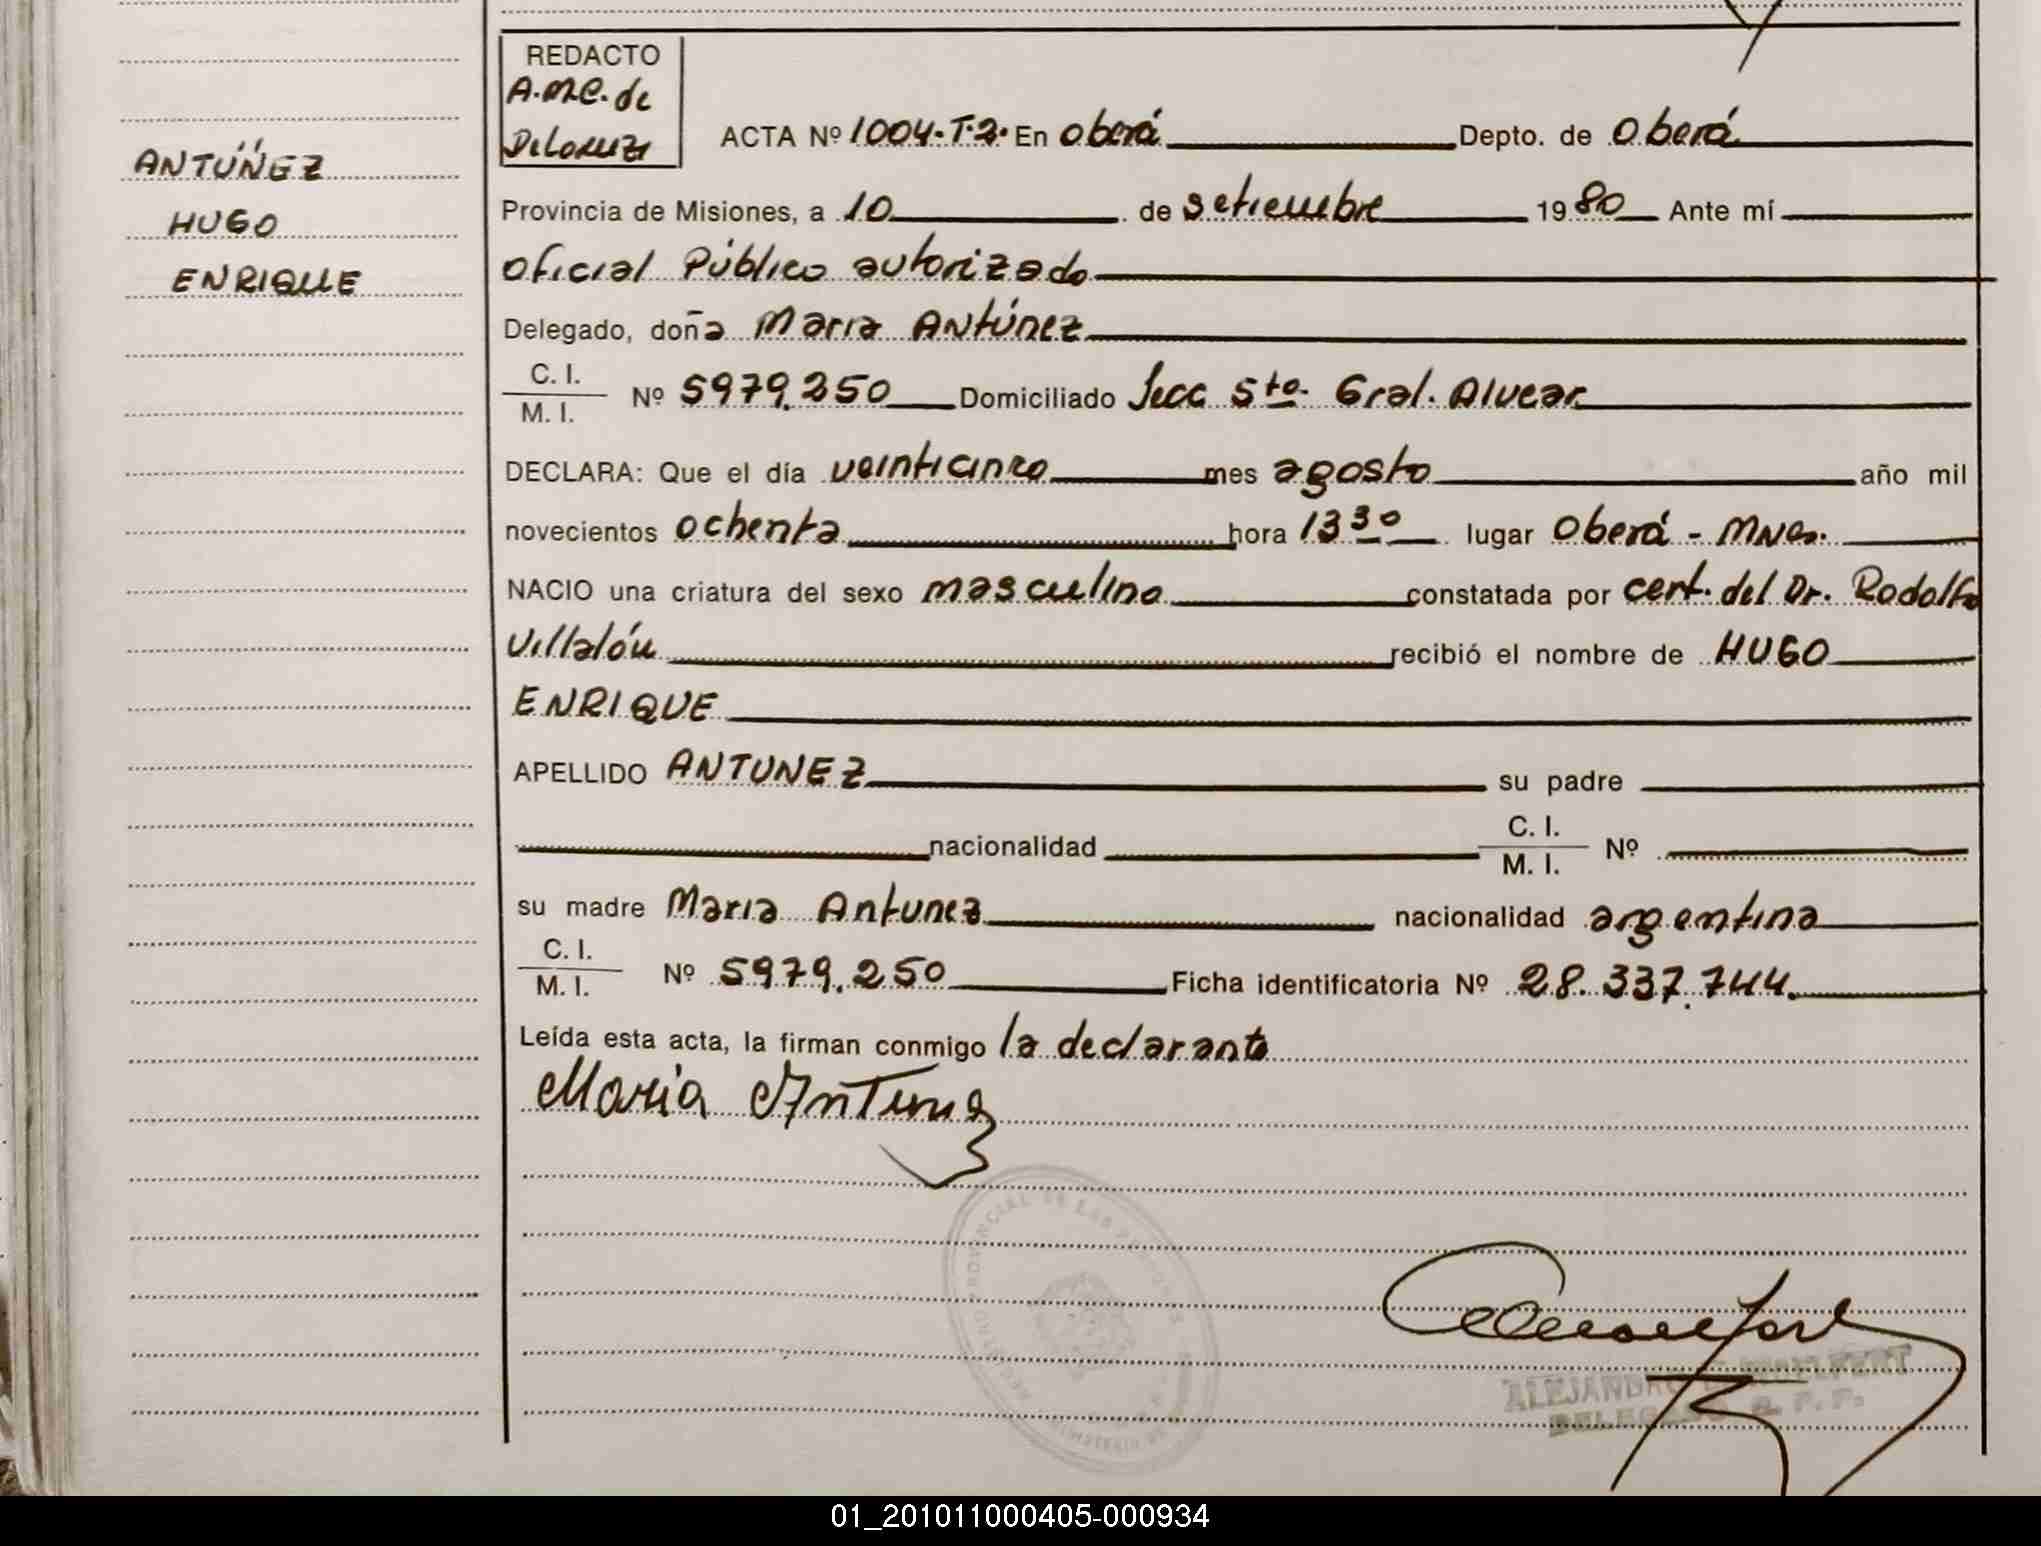 REDACTO
A.M.C. de
ANTÚÑEZ
HUGO
ENRIQUE
ACTA Nº 1004.T.2. En Oberá Depto. de Oberá
Provincia de Misiones, a 10 de setiembre 1980 Ante mí
Oficial Público autorizado
Delegado, doña Maria Antúnez
C. I.
M. I. Nº 5979.250 Domiciliado Secc 5ta. Gral. Alvear
DECLARA: Que el día veinticinco mes agosto año mil
novecientos ochenta hora 13 30 lugar Oberá - Mnes.
NACIO una criatura del sexo masculino constatada por cert. del Dr. Rodolfo
Villalón recibió el nombre de HUGO
ENRIQUE
APELLIDO ANTUNEZ su padre
nacionalidad C. I.
M. I. Nº
su madre Maria Antunez nacionalidad argentina
C. I.
M. I. Nº 5979.250 Ficha identificatoria Nº 28.337.744.
Leída esta acta, la firman conmigo la declarante
Maria Antunez
01_201011000405-000934